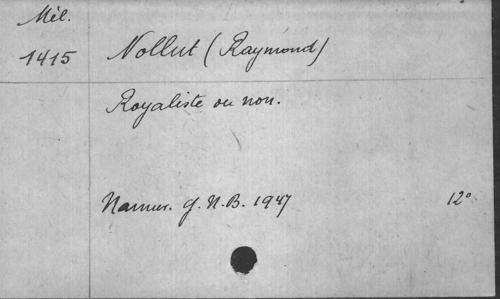 Mél.
1415 Nollut (Raymond)
Royaliste ou non.
Namur. J.N.B. 1947 12°